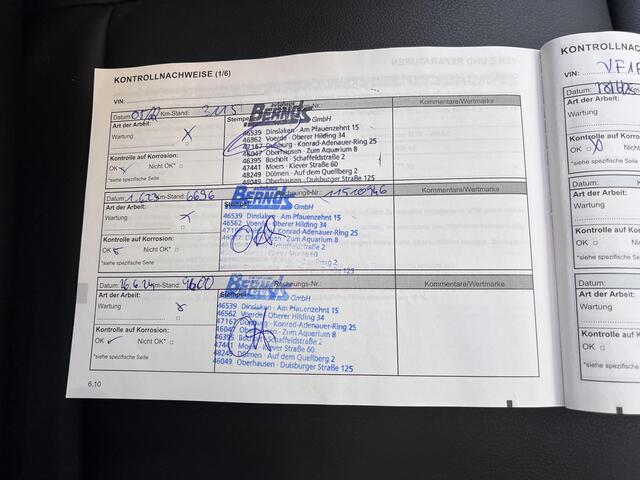 KONTROLLNACHWEISE (1/6)
VIN:
Datum: Km-Stand: 3115 -Nr.: Kommentare/Wertmarke
Art der Arbeit: Stempel
BERNDS
Wartung X
46539 Dinslaken · Am Pfauenzehnt 15
46562 Voerde · Oberer Hilding 34
47167 Duisburg · Konrad-Adenauer-Ring 25
46047 Oberhausen · Zum Aquarium 8
46395 Bocholt · Schaffeldstraße 2
47441 Moers · Klever Straße 60
48249 Dülmen · Auf dem Quellberg 2
46049 Oberhausen · Duisburger Straße 125
Kontrolle auf Korrosion:
OK Nicht OK*
*siehe spezifische Seite
Datum: Km-Stand: 6696 Rechnungs-Nr.: 11510946 Kommentare/Wertmarke
Art der Arbeit:
BERNDS GmbH
Wartung
46539 Dinslaken · Am Pfauenzehnt 15
46562 Voerde · Oberer Hilding 34
Konrad-Adenauer-Ring 25
Zum Aquarium 8
Kontrolle auf Korrosion:
OK Nicht OK*
*siehe spezifische Seite
Datum: 16.4.24 Km-Stand: 9600 Rechnungs-Nr.: Kommentare/Wertmarke
Art der Arbeit: Stempel
BERNDS GmbH
Wartung
46539 Dinslaken · Am Pfauenzehnt 15
46562 Voerde · Oberer Hilding 34
47167 Duisburg · Konrad-Adenauer-Ring 25
46047 Oberhausen · Zum Aquarium 8
46395 Bocholt · Schaffeldstraße 2
47441 Moers · Klever Straße 60
48249 Dülmen · Auf dem Quellberg 2
46049 Oberhausen · Duisburger Straße 125
Kontrolle auf Korrosion:
OK Nicht OK*
*siehe spezifische Seite
6.10
KONTROLLNACH
VIN: VF1
Datum:
Art der Arbeit:
Wartung
Kontrolle auf Korrosion
OK
*siehe spezifische Seite
Datum:
Art der Arbeit:
Wartung
Kontrolle auf Korros
OK
*siehe spezifische Seite
Datum:
Art der Arbeit:
Wartung
Kontrolle auf Korro
OK
*siehe spezifische S